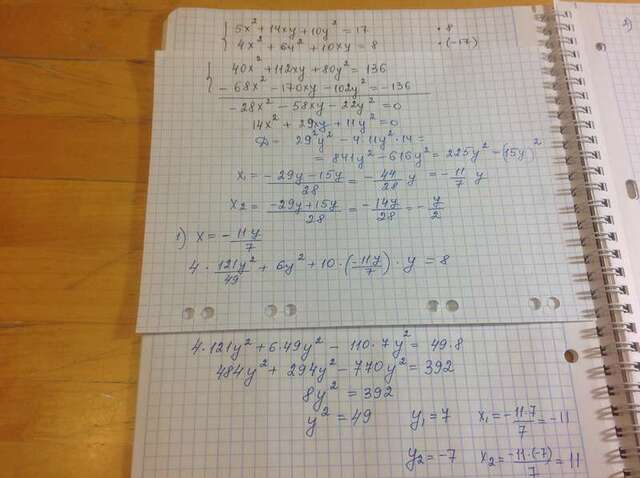 { 5x² + 14xy + 10y² = 17 · 8
{ 4x² + 6y² + 10xy = 8 · (-17)
{ 40x² + 112xy + 80y² = 136
- 68x² - 170xy - 102y² = -136
-28x² - 58xy - 22y² = 0
14x² + 29xy + 11y² = 0
D = 29²y² - 4·11y²·14 =
= 841y² - 616y² = 225y² - (15y)²
x₁ = (-29y - 15y)/28 = -44/28 y = -11/7 y
x₂ = (-29y + 15y)/28 = -14y/28 = -y/2
1) x = -11y/7
4 · 121y²/49 + 6y² + 10 · (-11y/7) · y = 8
4·121y² + 6·49y² - 110·7y² = 49·8
484y² + 294y² - 770y² = 392
8y² = 392
y² = 49 y₁ = 7 x₁ = -11·7/7 = -11
y₂ = -7 x₂ = -11·(-7)/7 = 11
2)